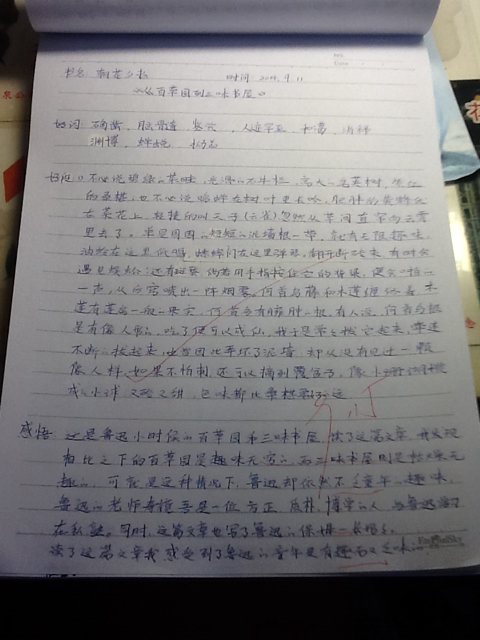 书名 朝花夕拾 时间 2014.9.11
《从百草园到三味书屋》
好词 确凿 脑髓 人迹罕至 和蔼
渊博 蝉蜕
好句 不必说碧绿的菜畦，光滑的石井栏，高大的皂荚树，紫红
的桑椹；也不必说鸣蝉在树叶里长吟，肥胖的黄蜂伏
在菜花上，轻捷的叫天子(云雀)忽然从草间直窜向云霄
里去了。单是周围的短短的泥墙根一带，就有无限趣味。
油蛉在这里低唱，蟋蟀们在这里弹琴。翻开断砖来，有时会
遇见蜈蚣；还有斑蝥，倘若用手指按住它的脊梁，便会拍的一
声，从后窍喷出一阵烟雾。何首乌藤和木莲藤缠络着，木
莲有莲房一般的果实，何首乌有臃肿的根。有人说，何首乌根
是有像人形的，吃了便可以成仙，我于是常常拔它起来，牵连
不断的拔起来，也曾因此弄坏了泥墙，却从没有见过一颗
像人样。如果不怕刺，还可以摘到覆盆子，像小珊瑚珠攒
成的小球，又酸又甜，色味都比桑椹要好得远
感悟：这是鲁迅小时候的百草园和三味书屋，读了这篇文章，我发现
相比之下的百草园是趣味无穷的，而三味书屋则是枯燥无
趣的，可就是这种情况下，鲁迅却依然不乏童年的趣味，
鲁迅的老师寿镜吾是一位方正、质朴、博学的人，
在私塾。同时，这篇文章也写了鲁迅的保姆一长妈妈。
读了这篇文章我感受到了鲁迅的童年是有趣而又乏味的。